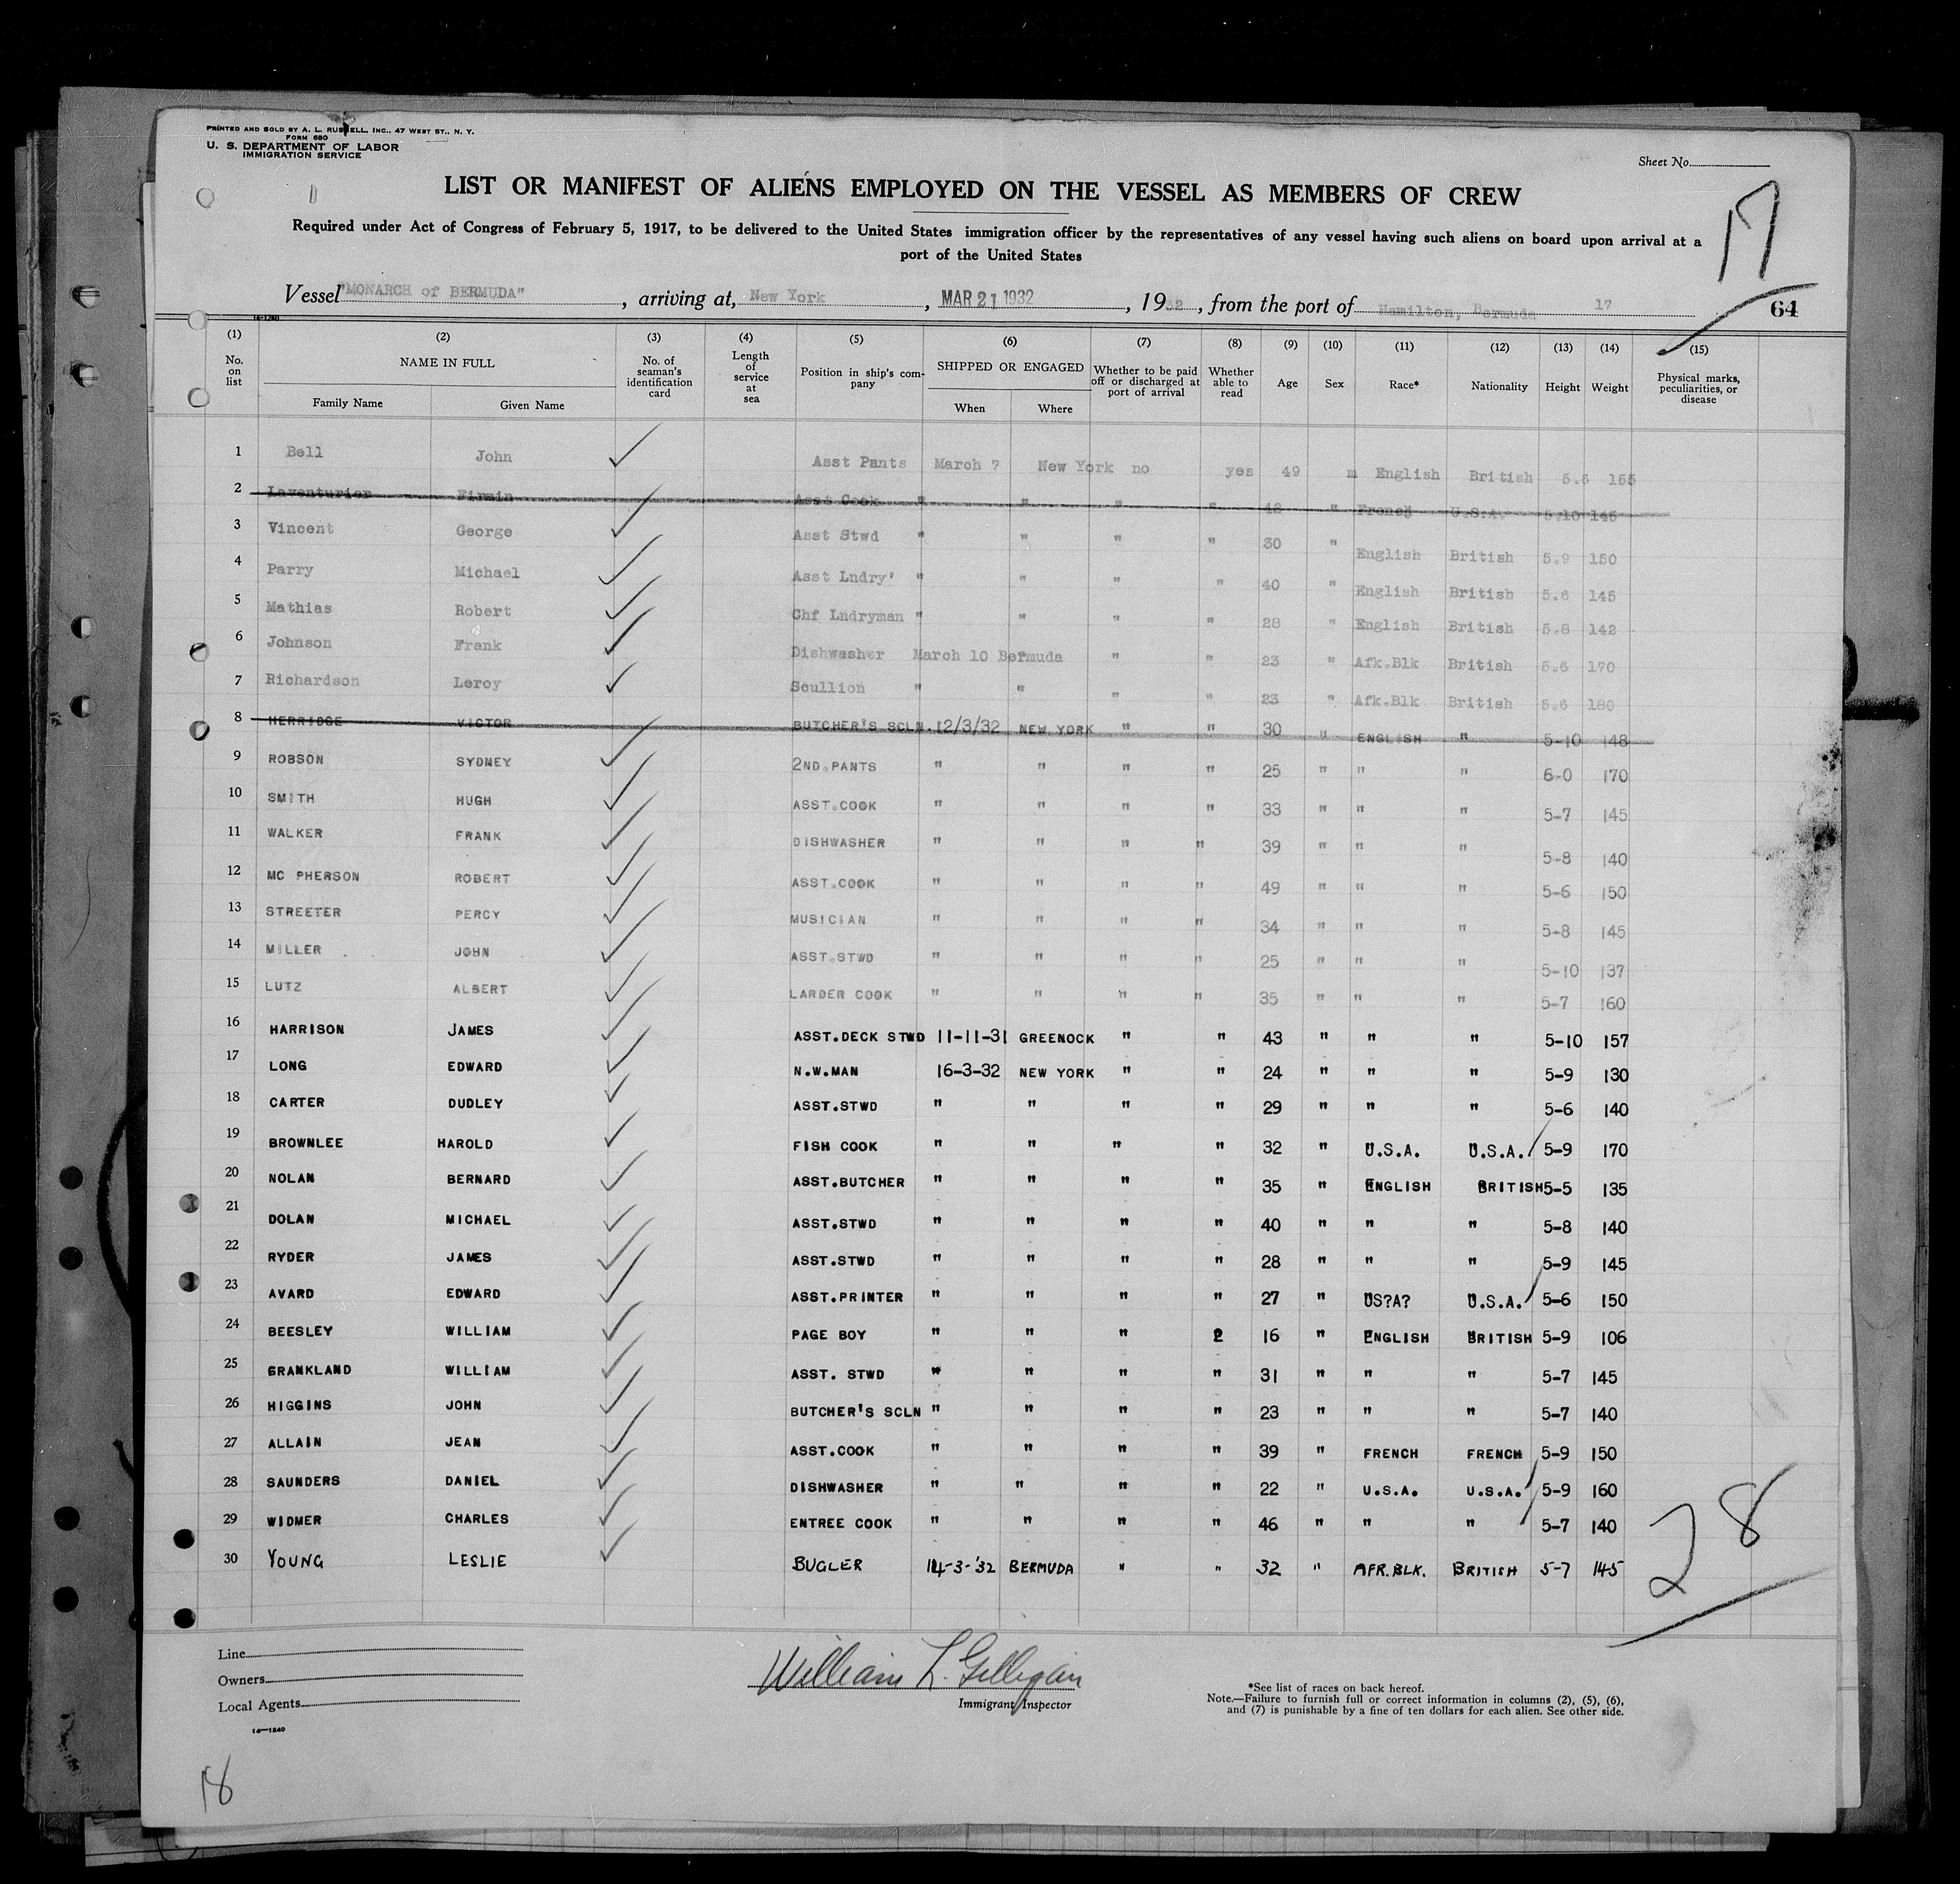 PRINTED AND SOLD BY A. L. RUSSELL, INC., 47 WEST ST., N. Y.
FORM 680
U. S. DEPARTMENT OF LABOR
IMMIGRATION SERVICE
Sheet No.
LIST OR MANIFEST OF ALIENS EMPLOYED ON THE VESSEL AS MEMBERS OF CREW
17
Required under Act of Congress of February 5, 1917, to be delivered to the United States immigration officer by the representatives of any vessel having such aliens on board upon arrival at a
port of the United States
Vessel "MONARCH of BERMUDA", arriving at, New York, MAR 21 1932, 1932, from the port of Hamilton, Bermuda 17
64
14-1240
(1) (2) (3) (4) (5) (6) (7) (8) (9) (10) (11) (12) (13) (14) (15)
No. on list NAME IN FULL Family Name Given Name No. of seaman's identification card Length of service at sea Position in ship's company SHIPPED OR ENGAGED When Where Whether to be paid off or discharged at port of arrival Whether able to read Age Sex Race* Nationality Height Weight Physical marks, peculiarities, or disease
1 Bell John Asst Pants March 7 New York no yes 49 m English British 5.6 155
2 Laventurier Firmin Asst Cook " " " " 42 " French U.S.A. 5.10 145
3 Vincent George Asst Stwd " " " " 30 " English British 5.9 150
4 Parry Michael Asst Lndry' " " " " 40 " English British 5.6 145
5 Mathias Robert Chf Lndryman " " " " 28 " English British 5.8 142
6 Johnson Frank Dishwasher March 10 Bermuda " " 23 " Afk.Blk British 5.6 170
7 Richardson Leroy Scullion " " " " 23 " Afk.Blk British 5.6 180
8 HERRIDGE VICTOR BUTCHER'S SCLN. 12/3/32 NEW YORK " " 30 " ENGLISH " 5-10 148
9 ROBSON SYDNEY 2ND.PANTS " " " " 25 " " " 6-0 170
10 SMITH HUGH ASST.COOK " " " " 33 " " " 5-7 145
11 WALKER FRANK DISHWASHER " " " " 39 " " " 5-8 140
12 MC PHERSON ROBERT ASST.COOK " " " " 49 " " " 5-6 150
13 STREETER PERCY MUSICIAN " " " " 34 " " " 5-8 145
14 MILLER JOHN ASST.STWD " " " " 25 " " " 5-10 137
15 LUTZ ALBERT LARDER COOK " " " " 35 " " " 5-7 160
16 HARRISON JAMES ASST.DECK STWD 11-11-31 GREENOCK " " 43 " " " 5-10 157
17 LONG EDWARD N.W.MAN 16-3-32 NEW YORK " " 24 " " " 5-9 130
18 CARTER DUDLEY ASST.STWD " " " " 29 " " " 5-6 140
19 BROWNLEE HAROLD FISH COOK " " " " 32 " U.S.A. U.S.A. 5-9 170
20 NOLAN BERNARD ASST.BUTCHER " " " " 35 " ENGLISH BRITISH 5-5 135
21 DOLAN MICHAEL ASST.STWD " " " " 40 " " " 5-8 140
22 RYDER JAMES ASST.STWD " " " " 28 " " " 5-9 145
23 AVARD EDWARD ASST.PRINTER " " " " 27 " US?A? U.S.A. 5-6 150
24 BEESLEY WILLIAM PAGE BOY " " " 2 16 " ENGLISH BRITISH 5-9 106
25 GRANKLAND WILLIAM ASST. STWD " " " " 31 " " " 5-7 145
26 HIGGINS JOHN BUTCHER'S SCLN " " " " 23 " " " 5-7 140
27 ALLAIN JEAN ASST.COOK " " " " 39 " FRENCH FRENCH 5-9 150
28 SAUNDERS DANIEL DISHWASHER " " " " 22 " U.S.A. U.S.A. 5-9 160
29 WIDMER CHARLES ENTREE COOK " " " " 46 " " " 5-7 140
30 YOUNG LESLIE BUGLER 14-3-'32 BERMUDA " " 32 " AFR.BLK. BRITISH 5-7 145
28
Line
Owners
Local Agents
14-1240
William L. Gilligan
Immigrant Inspector
*See list of races on back hereof.
Note.—Failure to furnish full or correct information in columns (2), (5), (6),
and (7) is punishable by a fine of ten dollars for each alien. See other side.
18